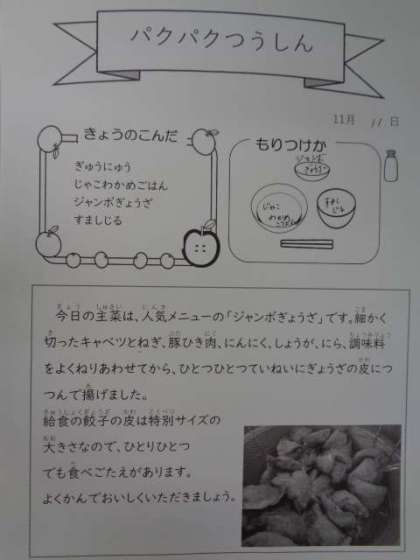 パクパクつうしん
11月 11 日
きょうのこんだ
ぎゅうにゅう
じゃこわかめごはん
ジャンボぎょうざ
すましじる
もりつけか
ジャンボ
ぎょうざ
じゃこ
わかめ
ごはん
すまし
じる
今日の主菜は、人気メニューの「ジャンボぎょうざ」です。細かく
切ったキャベツとねぎ、豚ひき肉、にんにく、しょうが、にら、調味料
をよくねりあわせてから、ひとつひとつていねいにぎょうざの皮につ
つんで揚げました。
給食の餃子の皮は特別サイズの
大きさなので、ひとりひとつ
でも食べごたえがあります。
よくかんでおいしくいただきましょう。